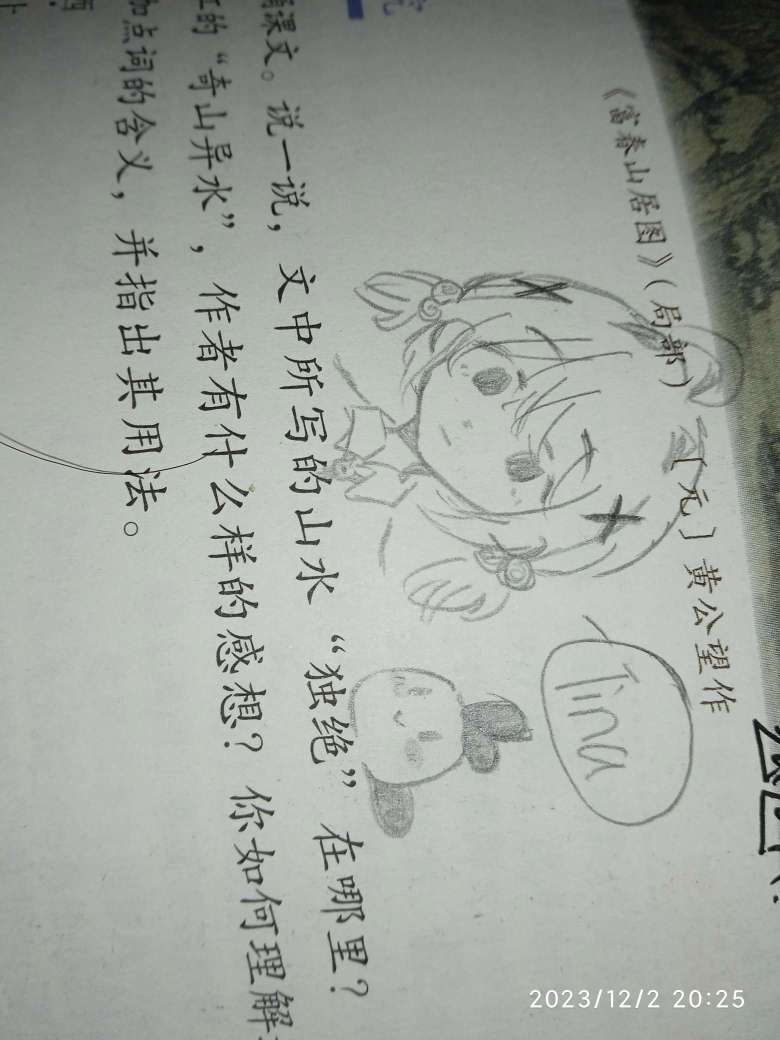 《富春山居图》（局部） ［元］黄公望作
Tina
课文。说一说，文中所写的山水“独绝”在哪里？
的“奇山异水”，作者有什么样的感想？你如何理解
加点词的含义，并指出其用法。
2023/12/2 20:25